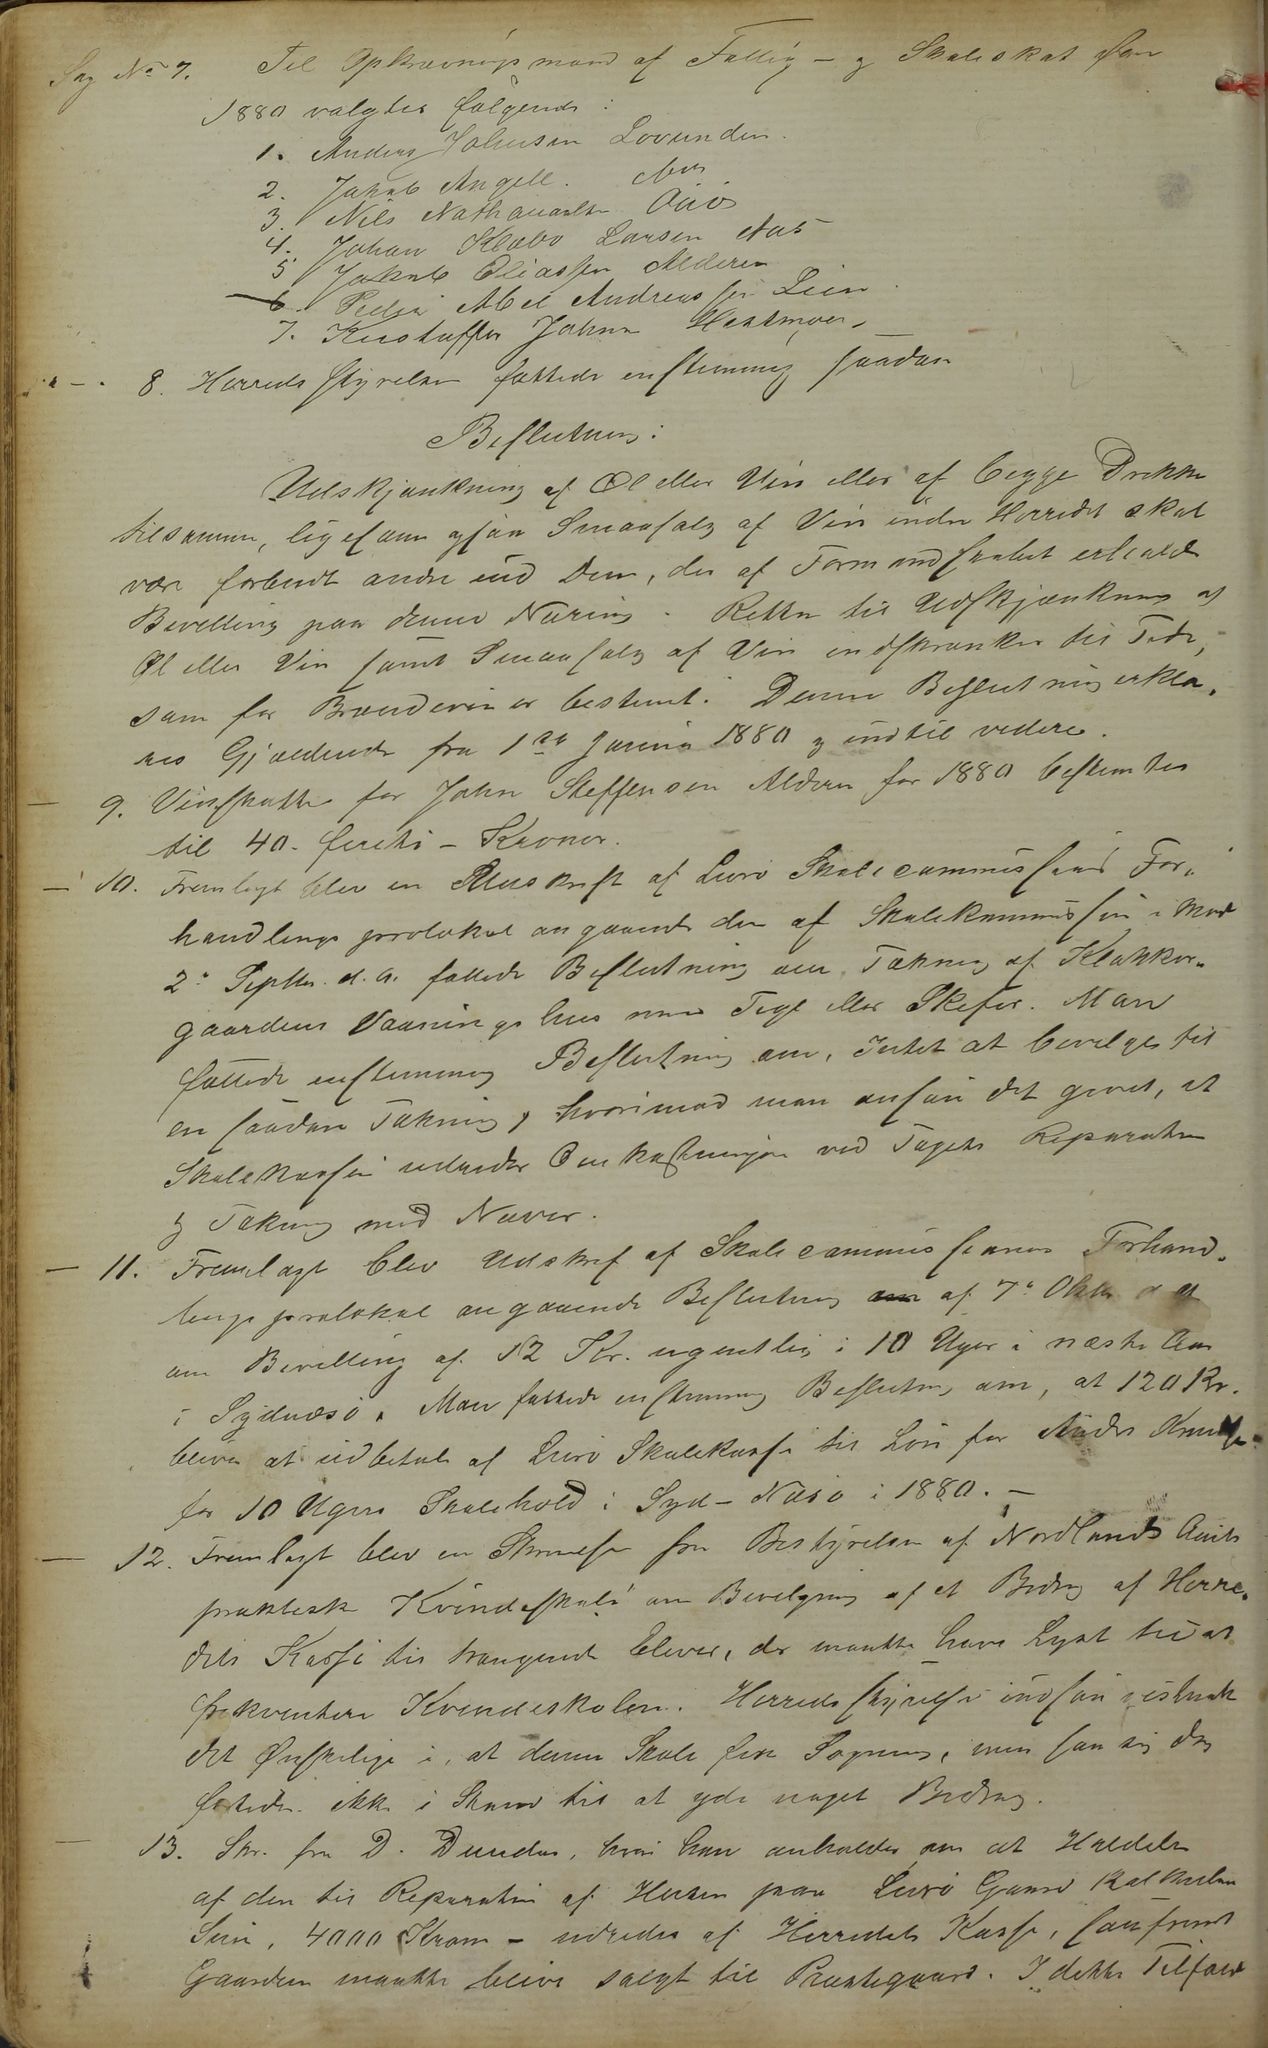 Sag No 7. Til Opkrævningsmænd af Fattig- og Skoleskat for
1880 valgtes følgende:
1. Anders Johnsen Lovunden.
2. Jakob Angell.
3. Nils Nathanaelsen
4. Johan Klæbo Larsen
5 Jakob Eliassen Alderen
6. Peder Abel Andreassen Lein
7. Kristoffer Johnsen Hestmoen.
- 8. Herredsstyrelsen fattede enstemmig saadan
Beslutning:
Udskjænkning af Øl eller Vin eller af begge Drikke
tilsammen, ligesom ogsaa Smaasalg af Vin inden Herredet skal
være forbudt andre end Dem, der af Formandskabet erholde
Bevilling paa denne Næring. Retten til Udskjænkning af
Øl eller Vin samt Smaasalg af Vin indskrænkes til Tider,
som for Brændevin er bestemt. Denne Beslutning erklæ-
res Gjældende fra 1ste Januar 1880 og indtil videre.
- 9. Vinskatten for John Steffensen Alderen for 1880 bestemtes
til 40 - firti - Kroner.
- 10. Fremlagt blev en Udskrift af Lurø Skolecommissions For-
handlings protokol angaaende den af Skolekommissionen i Møde
2den Septbr. d. A. fattede Beslutning om Tækning af Klokker-
gaardens Vaaningshus med Tegl eller Skifer. Man
fattede enstemmig Beslutning om, Intet at bevilge til
en saadan Tækning, hvorimod man ansaa det givet, at
Skolekassen udreder Omkostningen ved Tagets Reparation
og Tækning med Næver.
- 11. Fremlagt blev Udskrift af Skolecommissionens Forhand-
lings protokol angaaende Beslutning af 7de Oktbr d A
om Bevilling af 12 Kr. ugentlig i 10 Uger i næste Aar
i Sydnæsø. Man fattede enstemmig Beslutning om, at 120 Kr.
bliver at udbetale af Lurø Skolekasse til Løn for Anders
for 10 Ugers Skolehold i Syd-Næsø i 1880. -
- 12. Fremlagt blev en Skrivelse fra Bestyrelsen af Nordlands Amts
praktisk Kvindeskole om Bevilgning af et Bidrag af Herre-
dets Kasse til trængende Elever, der maatte have Lyst til at
frekventere Kvindeskolen. Herredsstyrelsen indsaa vistnok
det Ønskelige i, at denne Skole fik Søgning, men saa sig dog
fortiden ikke i Stand til at yde noget Bidrag.
- 13. Skr. fra D. Dundas, hvori han anholder om at Halvdelen
af den til Reparation af Husene paa Lurø Gaard kalkulerte
Sum, 4000 Kroner - udredes af Herredets Kasse, saafremt
Gaarden maatte blive solgt til Præstegaard. I dette Tilfælde